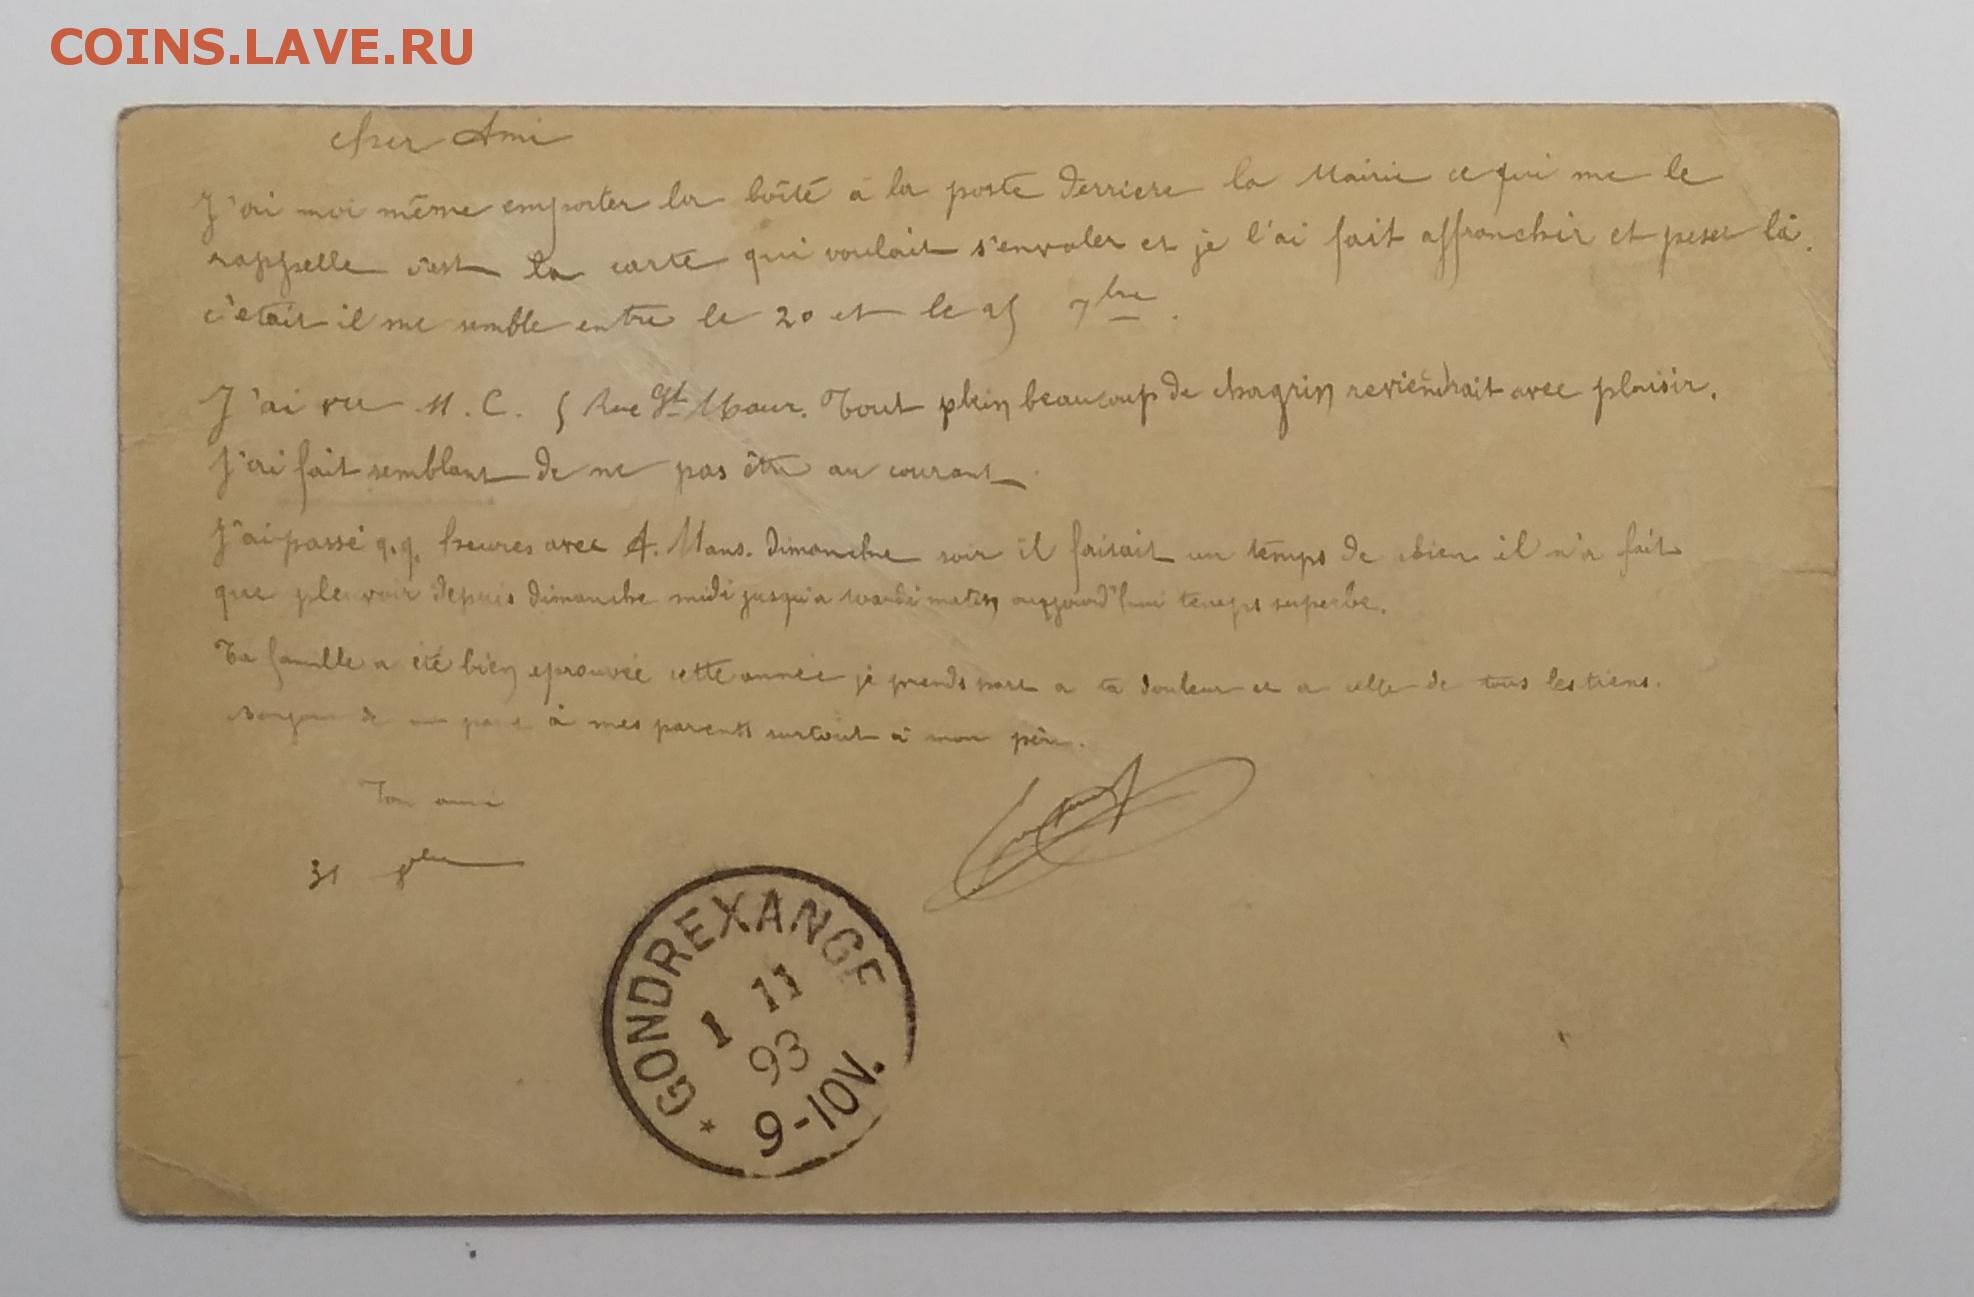 COINS.LAVE.RU
cher Ami
J'ai moi même emporter la boîté a la poste derriere la Mairie ce qui me le
rappelle c'est la carte qui voulait s'envoler et je l'ai fait affranchir et peser là.
c'etait il me semble entre le 20 et le 25 7bre.
J'ai vu M. C. 5 Rue St Maur. Tout plein beaucoup de chagrin reviendrait avec plaisir.
J'ai fait semblant de ne pas être au courant
J'ai passé q.q. heures avec A. Mans. dimanche soir il faisait un temps de chien il n'a fait
que pleuvoir depuis dimanche midi jusqu'a mardi matin aujourd'hui temps superbe.
Ta famille a été bien eprouvée cette année je prends part a ta douleur et a celle de tous les tiens.
Bonjour de ma part à mes parents surtout à mon père.
Ton ami
31 8bre
GONDREXANGE
1 11
93
* 9-10V.